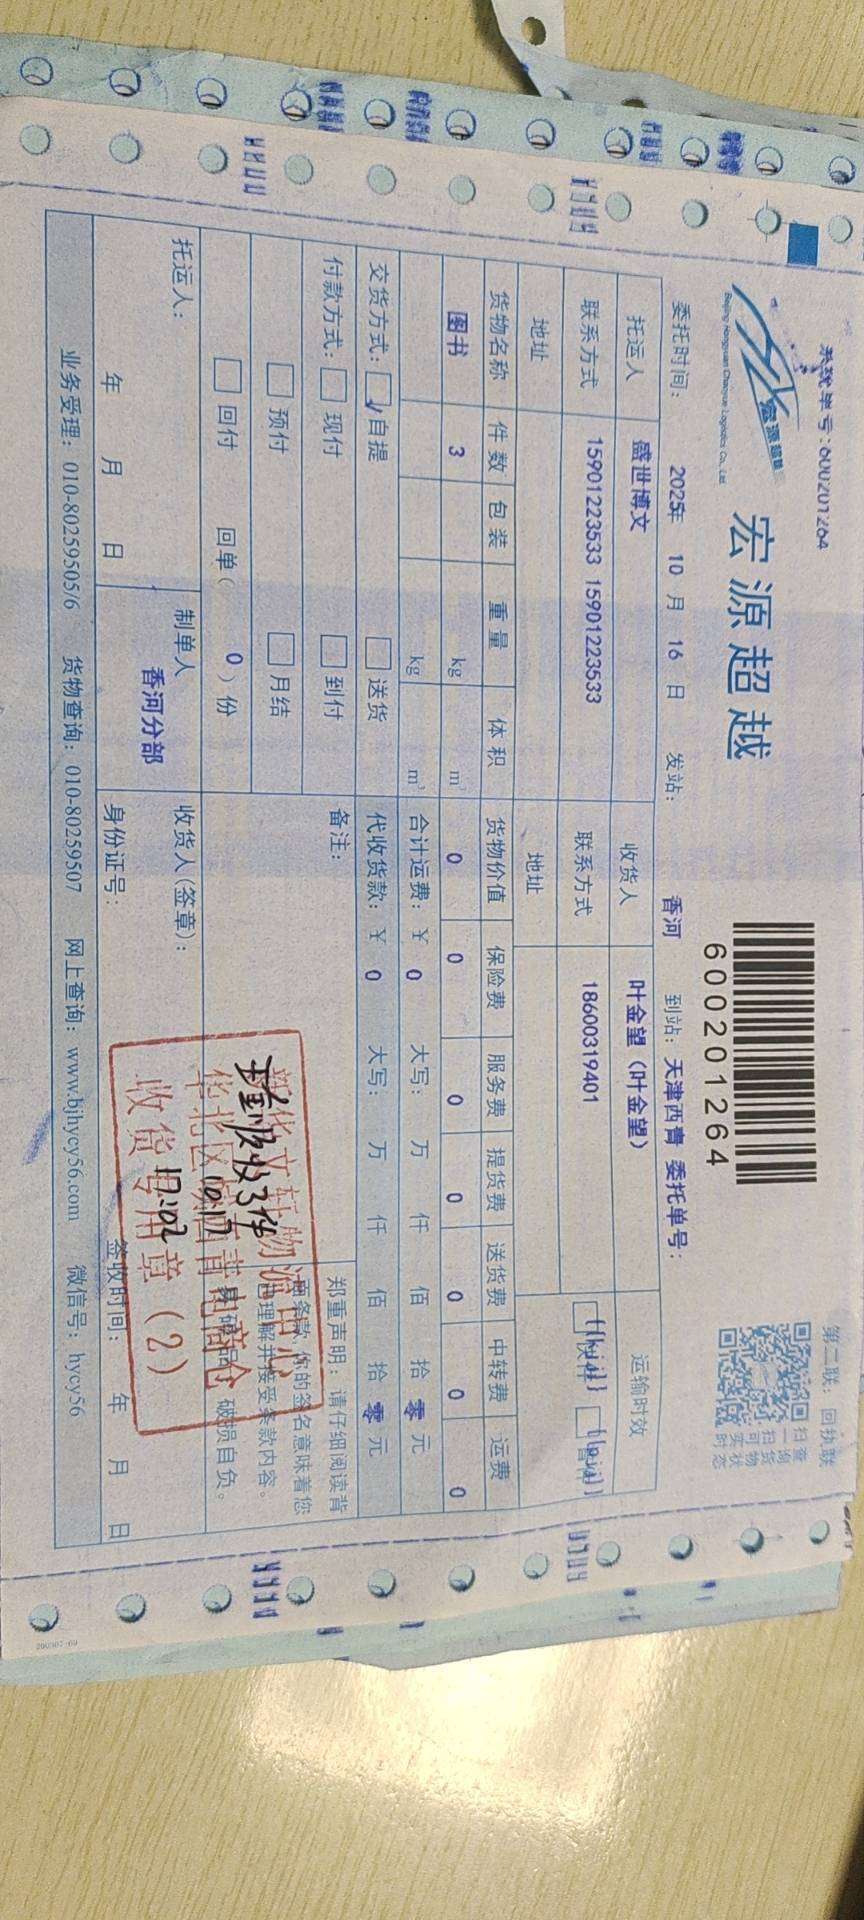 系统单号:600201264
第二联：回执联
宏源超越
Beijing Hongyuan Chaoyue Logistics Co., Ltd.
宏源超越
600201264
扫一扫可实时
查询货物状态
委托时间： 2025年 10 月 16 日 发站： 香河 到站： 天津西青 委托单号：
托运人 盛世博文 收货人 叶金望（叶金望） 运输时效
联系方式 15901223533 15901223533 联系方式 18600319401
地址 地址
货物名称 件数 包装 重量 体积 货物价值 保险费 服务费 提货费 送货费 中转费 运费
图书 3 kg m³ 0 0 0 0 0 0 0
kg m³ 合计运费：￥ 0 大写： 万 仟 佰 拾 零 元
交货方式： 自提 送货 代收货款：￥ 0 大写： 万 仟 佰 拾 零 元
付款方式： 现付 到付 备注：
预付 月结
回付 回单（ 0 ）份
郑重声明：请仔细阅读背
面条款，你的签名意味着您
已理解并接受条款内容。
破损自负。
3件
10.17
17:02
收货专用章（2）
托运人： 制单人 收货人(签章)：
香河分部
年 月 日 身份证号： 签收时间： 年 月 日
业务受理：010-80259505/6 货物查询：010-80259507 网上查询：www.bjhycy56.com 微信号：hycy56